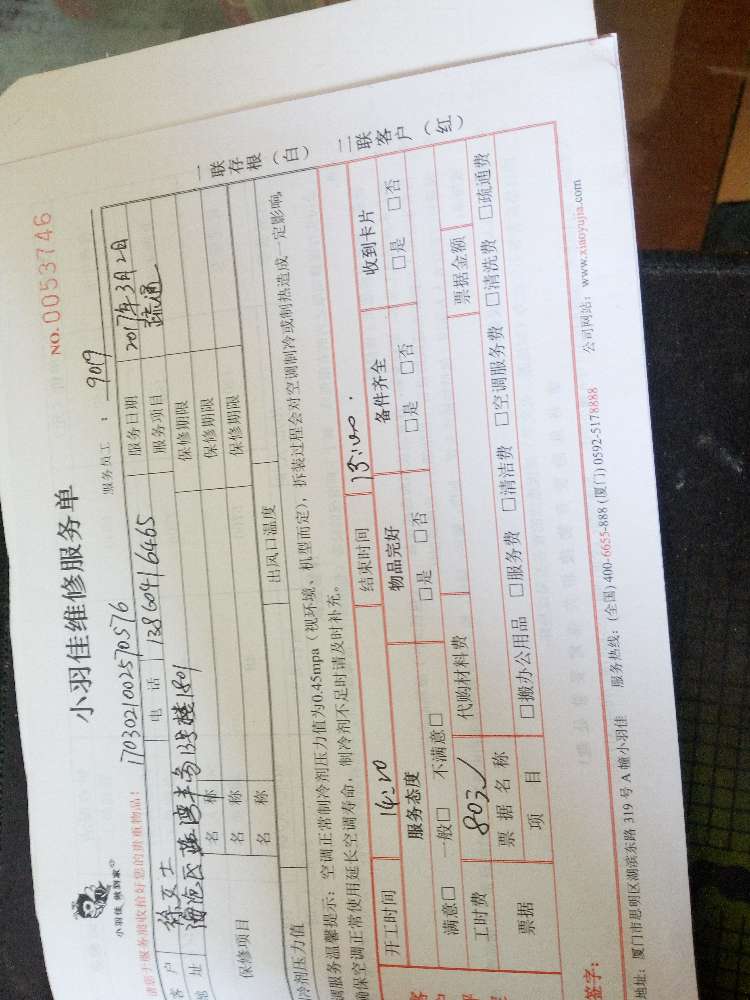 小羽佳维修服务单
NO.0053746
小羽佳 做到家
请于服务前收拾好您的贵重物品：
17030210025 70576
服务员工：9019
客户
女士
电话
13860416465
服务日期
2017年3月2日
地址
海沧区
13号楼1801
服务项目
疏通
保修项目
名称
保修期限
名称
保修期限
名称
保修期限
冷剂压力值
出风口温度
调服务温馨提示：空调正常制冷剂压力值为0.45mpa（视环境、机型而定），拆装过程会对空调制冷或制热造成一定影响，
确保空调正常使用延长空调寿命，制冷剂不足时请及时补充。
开工时间
14:20
结束时间
15:00.
服务态度
物品完好
备件齐全
收到卡片
满意□ 一般□ 不满意□
□是 □否
□是 □否
□是 □否
工时费
80元
代购材料费
票据金额
票据
票据名称
项目
□搬办公用品 □服务费 □清洁费 □空调服务费 □清洗费 □疏通费
签字：
地址：厦门市思明区湖滨东路 319 号 A 幢小羽佳 服务热线：(全国) 400-6655-888 (厦门) 0592-5178888 公司网站：www.xiaoyujia.com
一联存根（白）
二联客户（红）